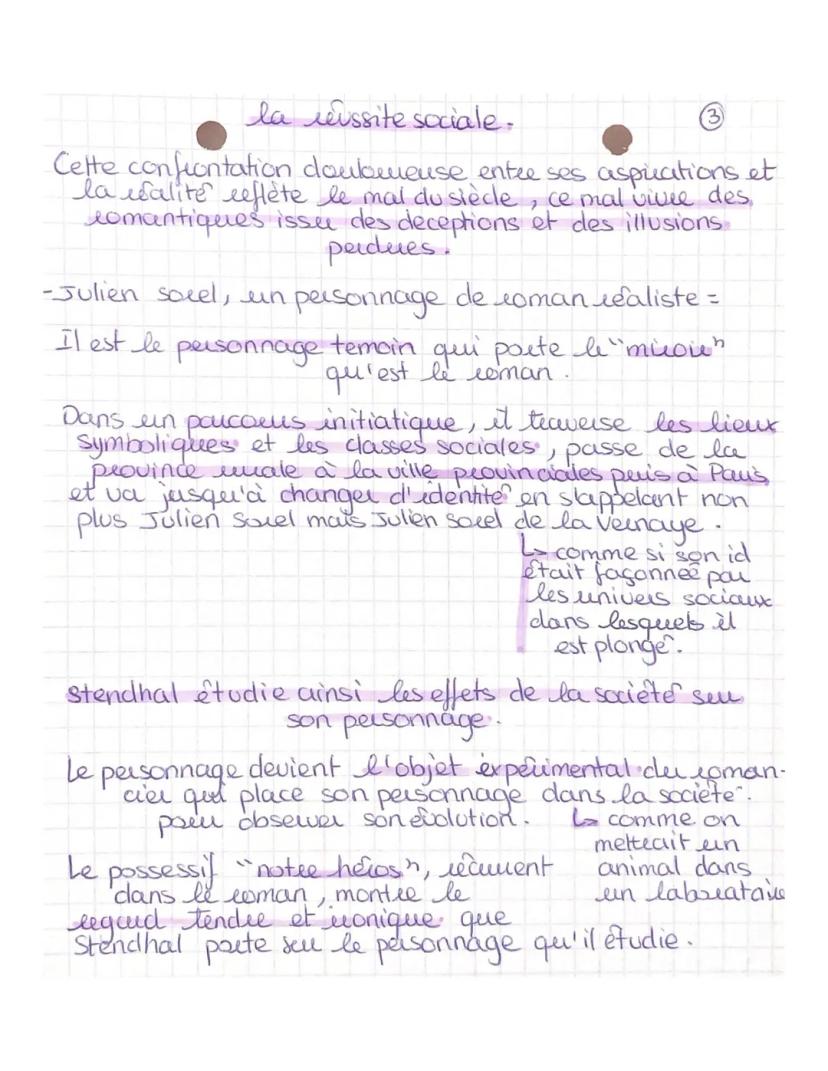 la réussite sociale.
③
Cette confrontation douloureuse entre ses aspirations et
la réalité reflète le mal du siècle, ce mal vivre des
romantiques issu des déceptions et des illusions
perdues.
- Julien Sorel, un personnage de roman réaliste =
Il est le personnage temoin qui porte le "miroir"
qu'est le roman.
Dans un parcours initiatique, il traverse les lieux
symboliques et les classes sociales, passe de la
province rurale à la ville provinciales puis à Paris
et va jusqu'à changer d'identité en s'appelant non
plus Julien Sorel mais Julien Sorel de la Vernaye.
↳ comme si son id
était façonnée par
les univers sociaux
dans lesquels il
est plongé.
Stendhal étudie ainsi les effets de la société sur
son personnage.
Le personnage devient l'objet expérimental du roman-
cier qui place son personnage dans la société.
pour observer son évolution.
↳ comme on
mettrait un
animal dans
un laboratoire
Le possessif "notre héros", récurrent
dans le roman, montre le
regard tendre et ironique que
Stendhal porte sur le personnage qu'il étudie.